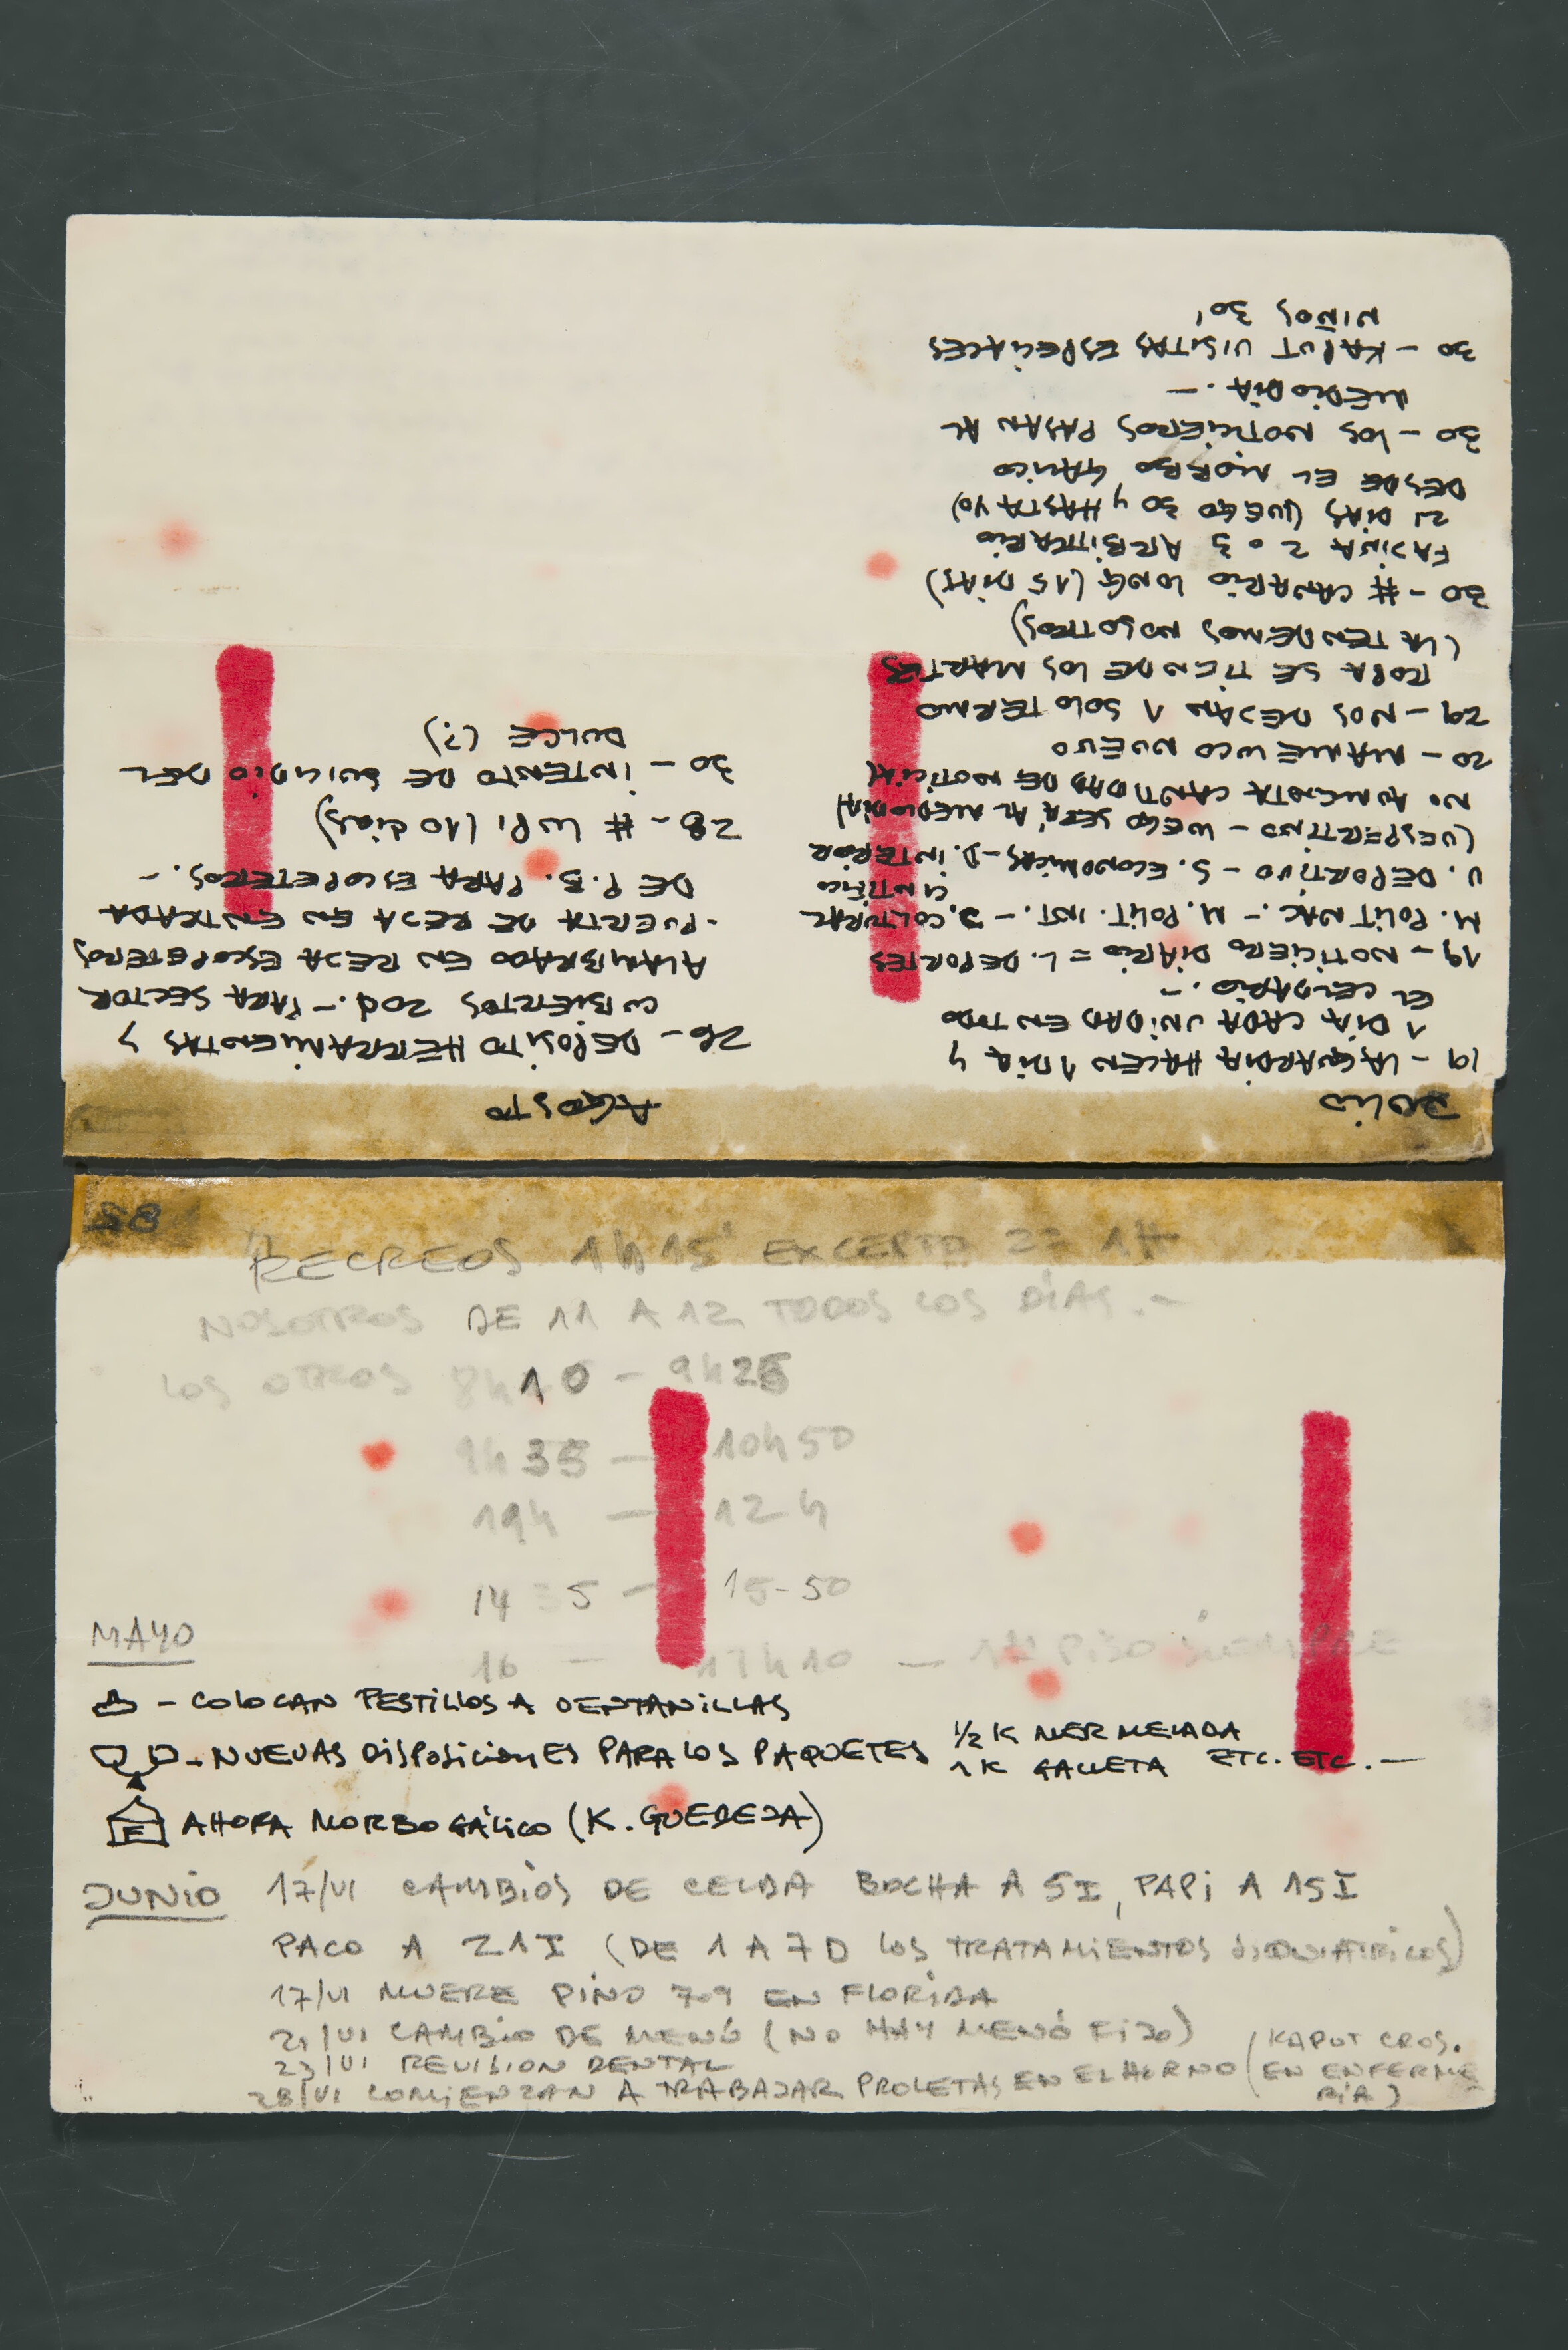 JULIO
19 - LA GUARDIA HACEN 1 DIA Y
1 DIA CADA UNIDAD EN TODO
EL CELDARIO.-
19 - NOTICIERO DIARIO = L. DEPORTES
M. POLIT NAC. - M. POLIT. INT. - J. CULTURAL
CINTIFICO
V. DEPORTIVO - S. ECONOMICAS - D. INTERIOR
(VESPERTINO - LUEGO SERÁ AL MEDIODIA)
NO AUMENTA CANTIDAD DE NOTICIAS
20 - NUEVO
29 - NOS DEJAN 1 SOLO TERMO
ROPA SE TIENDE LOS MARTES
(LA TENDEMOS NOSOTROS)
30 - # CANARIO LONG (15 DIAS)
FAJINA 2 o 3 ARBITRARIO
21 DIAS (LUEGO 30 Y HASTA 40)
DESDE EL MORBO GALICO
30 - LOS NOTICIEROS PASAN AL
MEDIODIA.-
30 - KAPUT VISITAS ESPECIALES
NIÑOS 30'
AGOSTO
26 - DEPOSITO HERRAMIENTAS Y
CUBIERTOS 2od. - PARA SECTOR
ALAMBRADO EN REJA ESCOPETEROS
- PUERTA DE REJA EN ENTRADA
DE P.B. PARA ESCOPETEROS.-
28 - # LUPI (10 dias)
30 - INTENTO DE SUICIDIO DEL
DULCE (?)
58
RECREOS 1h 15' EXCEPTO 2º 1H
NOSOTROS DE 11 A 12 TODOS LOS DÍAS.-
LOS OTROS 8h10 - 9h25
9h 35 - 10h50
- 12 h
14 35 - 15-50
16 - 17h10 - PISO SIEMPRE
MAYO
- COLOCAN PESTILLOS A VENTANILLAS
- NUEVAS DISPOSICIONES PARA LOS PAQUETES 1/2 K MERMELADA
1 K GALLETA ETC. ETC. -
E AHORA MORBO GÁLICO (K. GUEDEJA)
JUNIO 17/VI CAMBIOS DE CELDA BOCHA A 5I, PAPI A 15I
PACO A 21I (DE 1 A 7 D LOS TRATAMIENTOS SIQUIATRICOS)
17/VI MUERE PINO 709 EN FLORIDA
21/VI CAMBIO DE MENÚ (NO HAY MENÚ FIJO)
23/VI REVISION DENTAL
28/VI COMIENZAN A TRABAJAR PROLETAS EN EL HORNO (KAPUT CROS.
EN ENFERME
RIA)